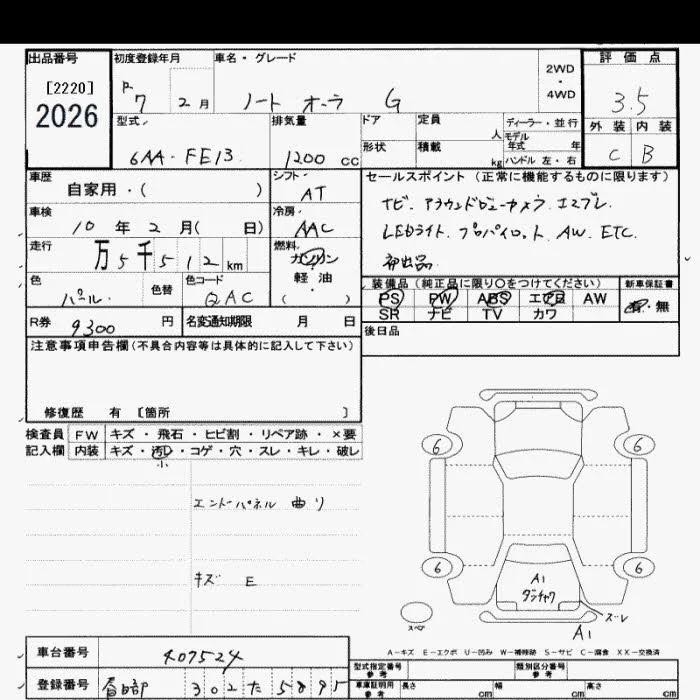 出品番号
[2220]
2026
初度登録年月
R 7 2月
車名・グレード
ノート オーラ G
2WD
・
4WD
評価点
3.5
外装 内装
C B
型式
6AA-FE13
排気量
1200 cc
ドア
形状
定員 人
積載 kg
ディーラー・並行
モデル年式 年
ハンドル 左・右
車歴
自家用・( )
シフト
AT
車検
10年2月( 日)
冷房
AAC
走行
万5千512km
燃料
ガソリン
軽油
・
( )
色
パール
色替
色コード
QAC
R券
9300 円
名変通知期限 月 日
セールスポイント (正常に機能するものに限ります)
ナビ. アラウンドビューカメラ. エマブレ.
LEDライト. プロパイロット. AW. ETC.
装備品 (純正品に限り〇をつけてください)
PS PW ABS エアB AW
SR ナビ TV カワ
新車保証書
有・無
後日品
注意事項申告欄(不具合内容等は具体的に記入して下さい)
修復歴 有 [箇所 ]
検査員記入欄
FW キズ・飛石・ヒビ割・リペア跡・×要
内装 キズ・汚レ・コゲ・穴・スレ・キレ・破レ
小
エンドパネル 曲り
キズ E
6 6
6 6
A1
ズレ
A1
スペア
A-キズ E-エクボ U-凹み W-補修跡 S-サビ C-腐食 XX-交換済
車台番号
407524
登録番号
春日部 302 た 5895
型式指定番号 参考
類別区分番号 参考
車庫証明用 参考
長さ cm 幅 cm 高さ cm